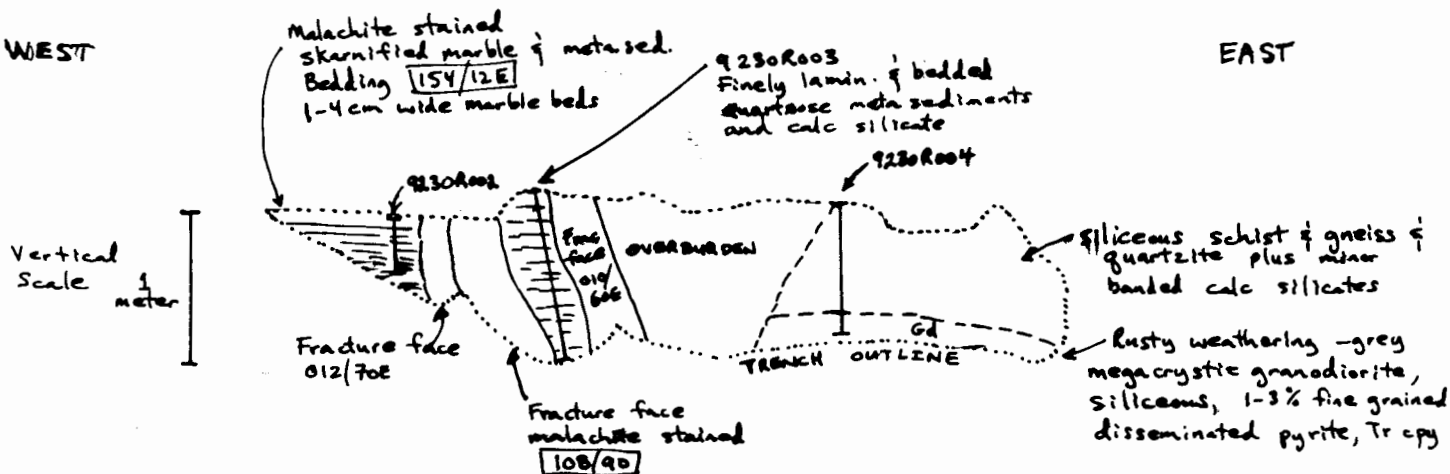 WEST
Malachite stained
skarnified marble & metased.
Bedding 154/12E
1-4cm wide marble beds
9230R003
Finely lamin. & bedded
quartzose meta sediments
and calc silicate
EAST
9230R002
9230R004
Vertical
Scale
1
meter
Frac
face
010/
60E
OVERBURDEN
siliceous schist & gneiss &
quartzite plus minor
banded calc silicates
Gd
TRENCH OUTLINE
Fracture face
012/70E
Rusty weathering - grey
megacrystic granodiorite,
siliceous, 1-3% fine grained
disseminated pyrite, Tr cpy
Fracture face
malachite stained
108/90